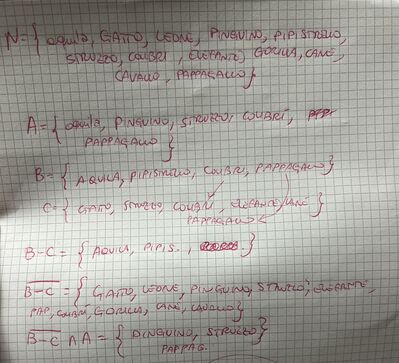 N={ aquila, GATTO, LEONE, PINGUINO, PIPISTRELLO,
STRUZZO, COLIBRÌ, ELEFANTE, GORILLA, CANE,
CAVALLO, PAPPAGALLO}
A={ aquila, PINGUINO, STRUZZO, COLIBRÍ,
PAPPAGALLO }
B={ AQUILA, PIPISTRELLO, COLIBRI, PAPPAGALLO}
C={ GATTO, STRUZZO, COLIBRÍ, ELEFANTE, CANE }
PAPPAGALLO
B-C = { AQUILA, PIPIS. , }
B-C = { GATTO, LEONE, PINGUINO, STRUZZO, ELEFANTE,
PAP, COLIBRÍ, GORILLA, CANE, CAVALLO}
B-C ∩ A = { PINGUINO, STRUZZO }
PAPPAG.